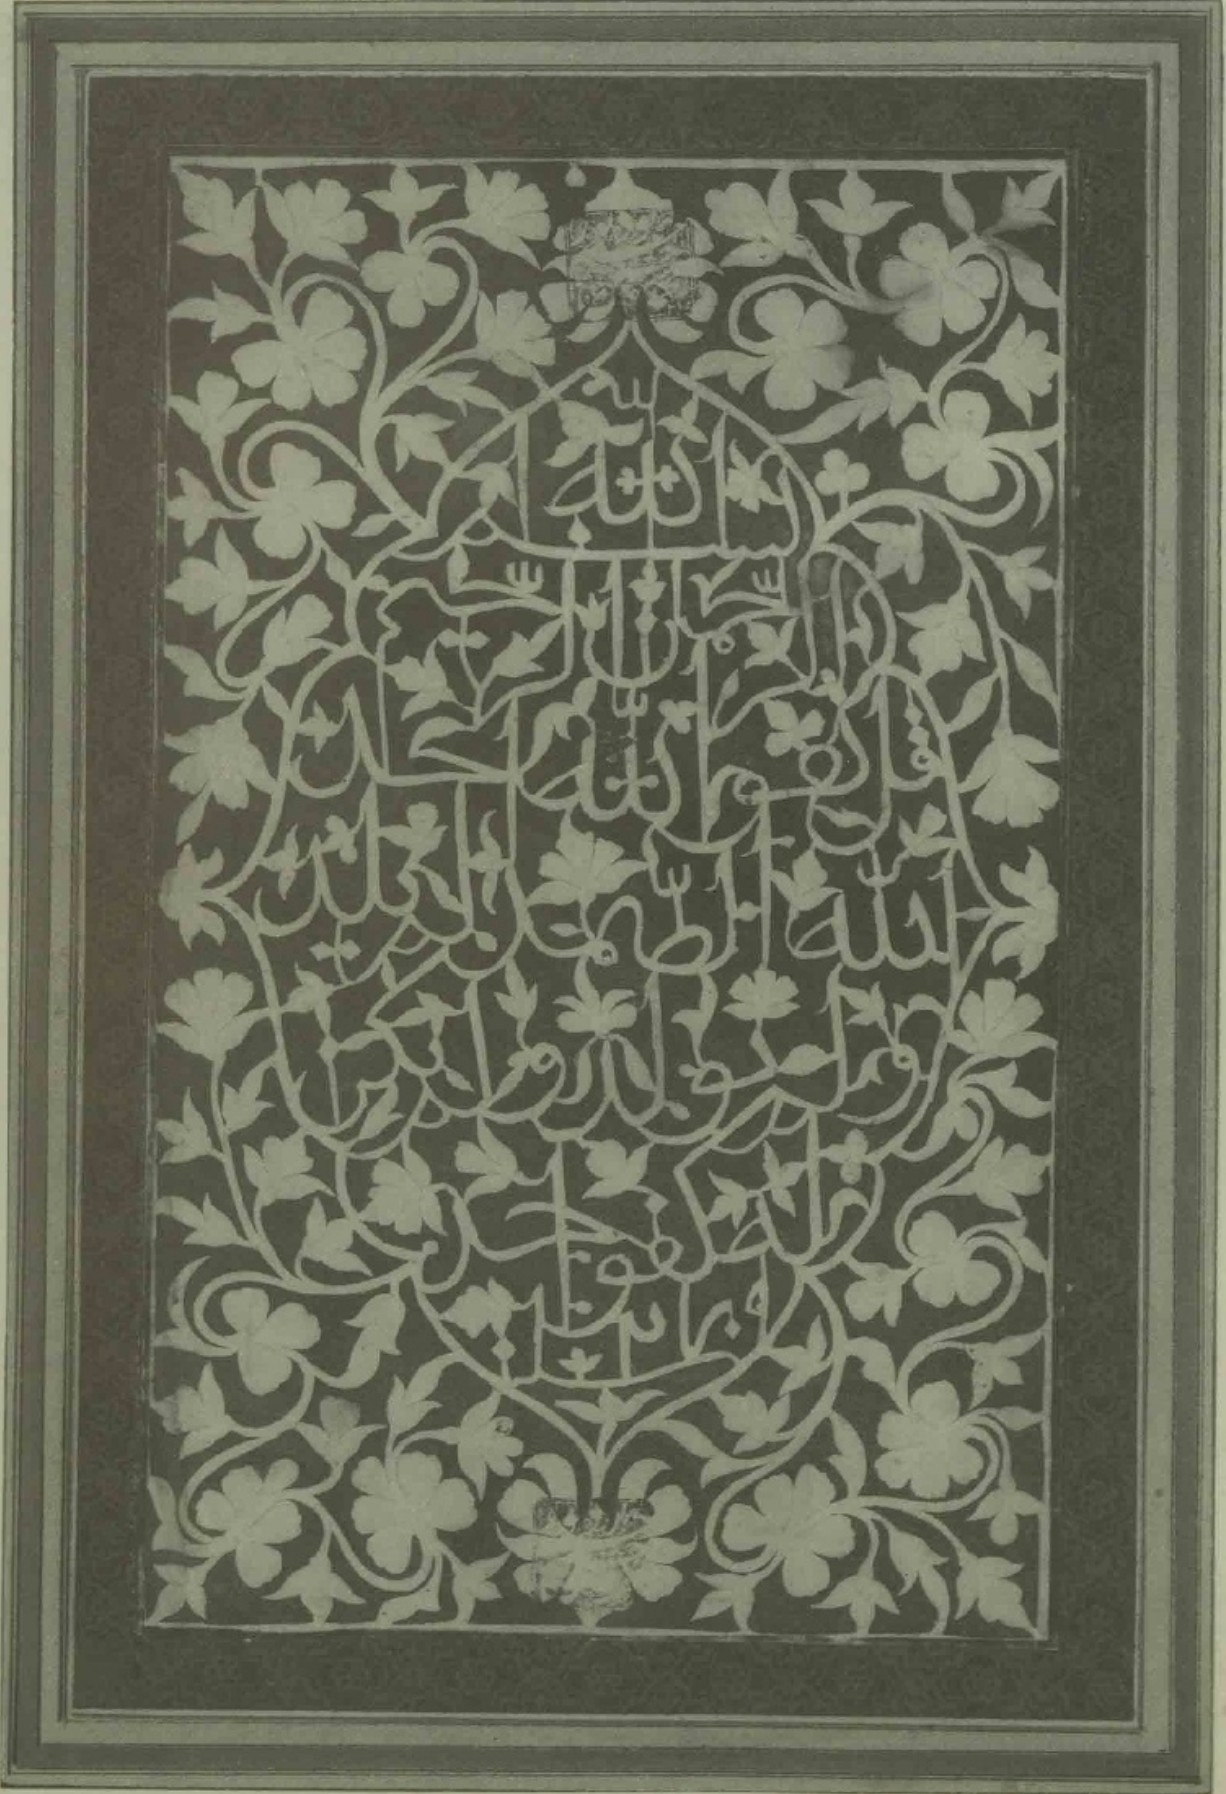 بسم الله
الرحمن الرحيم
قل هو الله احد
الله الصمد لم يلد
ولم يولد ولم يكن
له كفوا احد